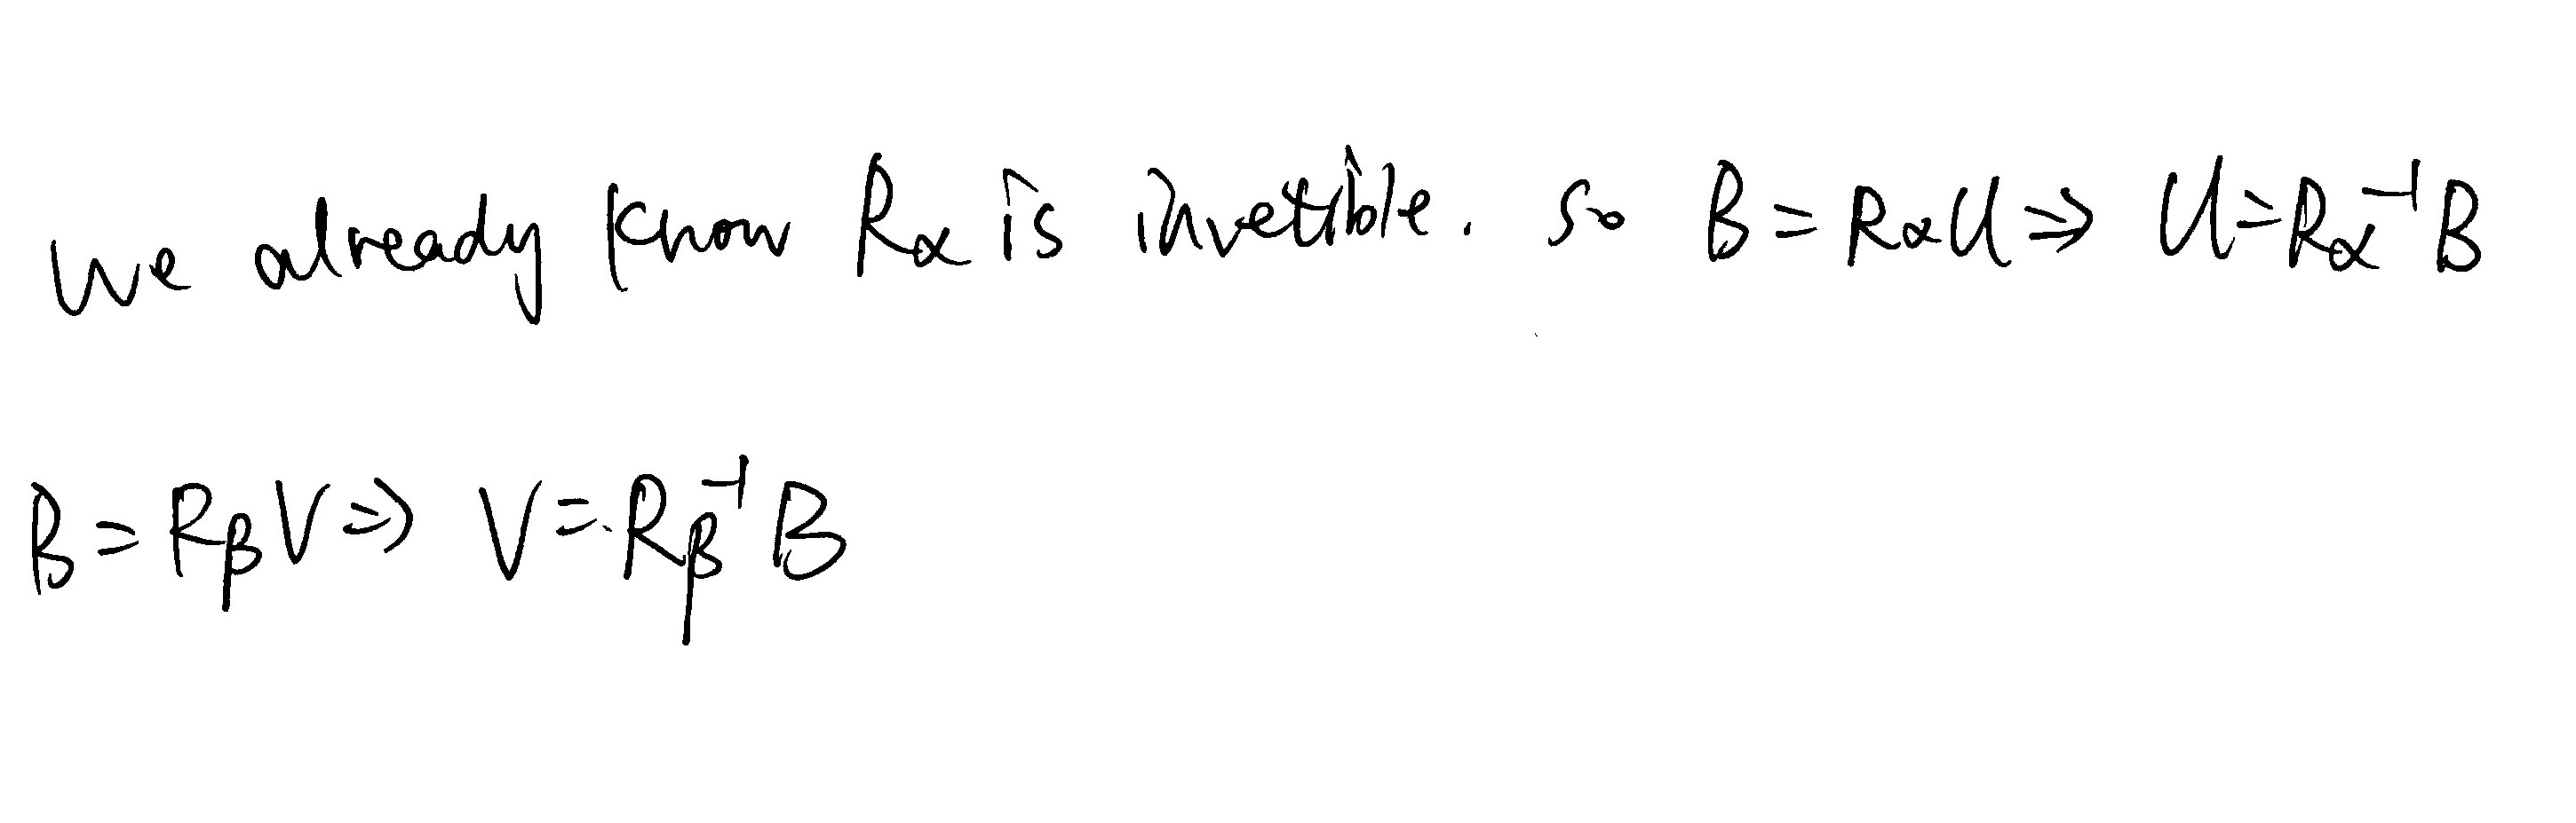 We already know Rα is invetible. so B = RαU ⇒ U = Rα⁻¹B
B = RβV ⇒ V = Rβ⁻¹B